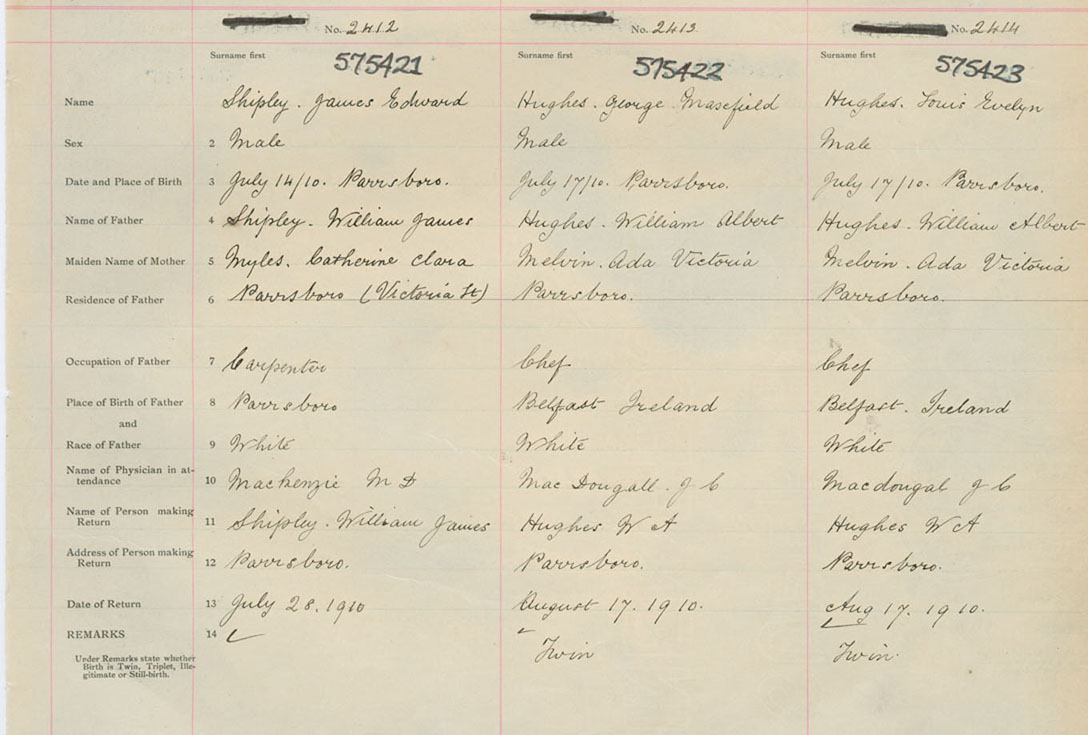 No. 2412 No. 2413 No. 2414
Surname first Surname first Surname first
575421 575422 575423
Name Shipley. James Edward Hughes. George Masefield Hughes. Louis Evelyn
Sex 2 Male Male Male
Date and Place of Birth 3 July 14/10. Parrsboro. July 17/10. Parrsboro. July 17/10. Parrsboro.
Name of Father 4 Shipley. William James Hughes. William Albert Hughes. William Albert
Maiden Name of Mother 5 Myles. Catherine Clara Melvin. Ada Victoria Melvin. Ada Victoria
Residence of Father 6 Parrsboro (Victoria St) Parrsboro. Parrsboro.
Occupation of Father 7 Carpenter Chef Chef
Place of Birth of Father 8 Parrsboro Belfast Ireland Belfast. Ireland
and
Race of Father 9 White White White
Name of Physician in at-
tendance 10 Mackenzie M D Mac Dougall. J C Macdougal J C
Name of Person making
Return 11 Shipley. William James Hughes W A Hughes W A
Address of Person making
Return 12 Parrsboro. Parrsboro. Parrsboro.
Date of Return 13 July 28. 1910 August 17. 1910. Aug 17. 1910.
REMARKS 14
Under Remarks state whether
Birth is Twin, Triplet, Ille-
gitimate or Still-birth.
Twin Twin.